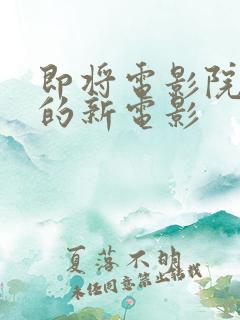 即将电影院
的新电影
夏落不明
未经同意禁止转载